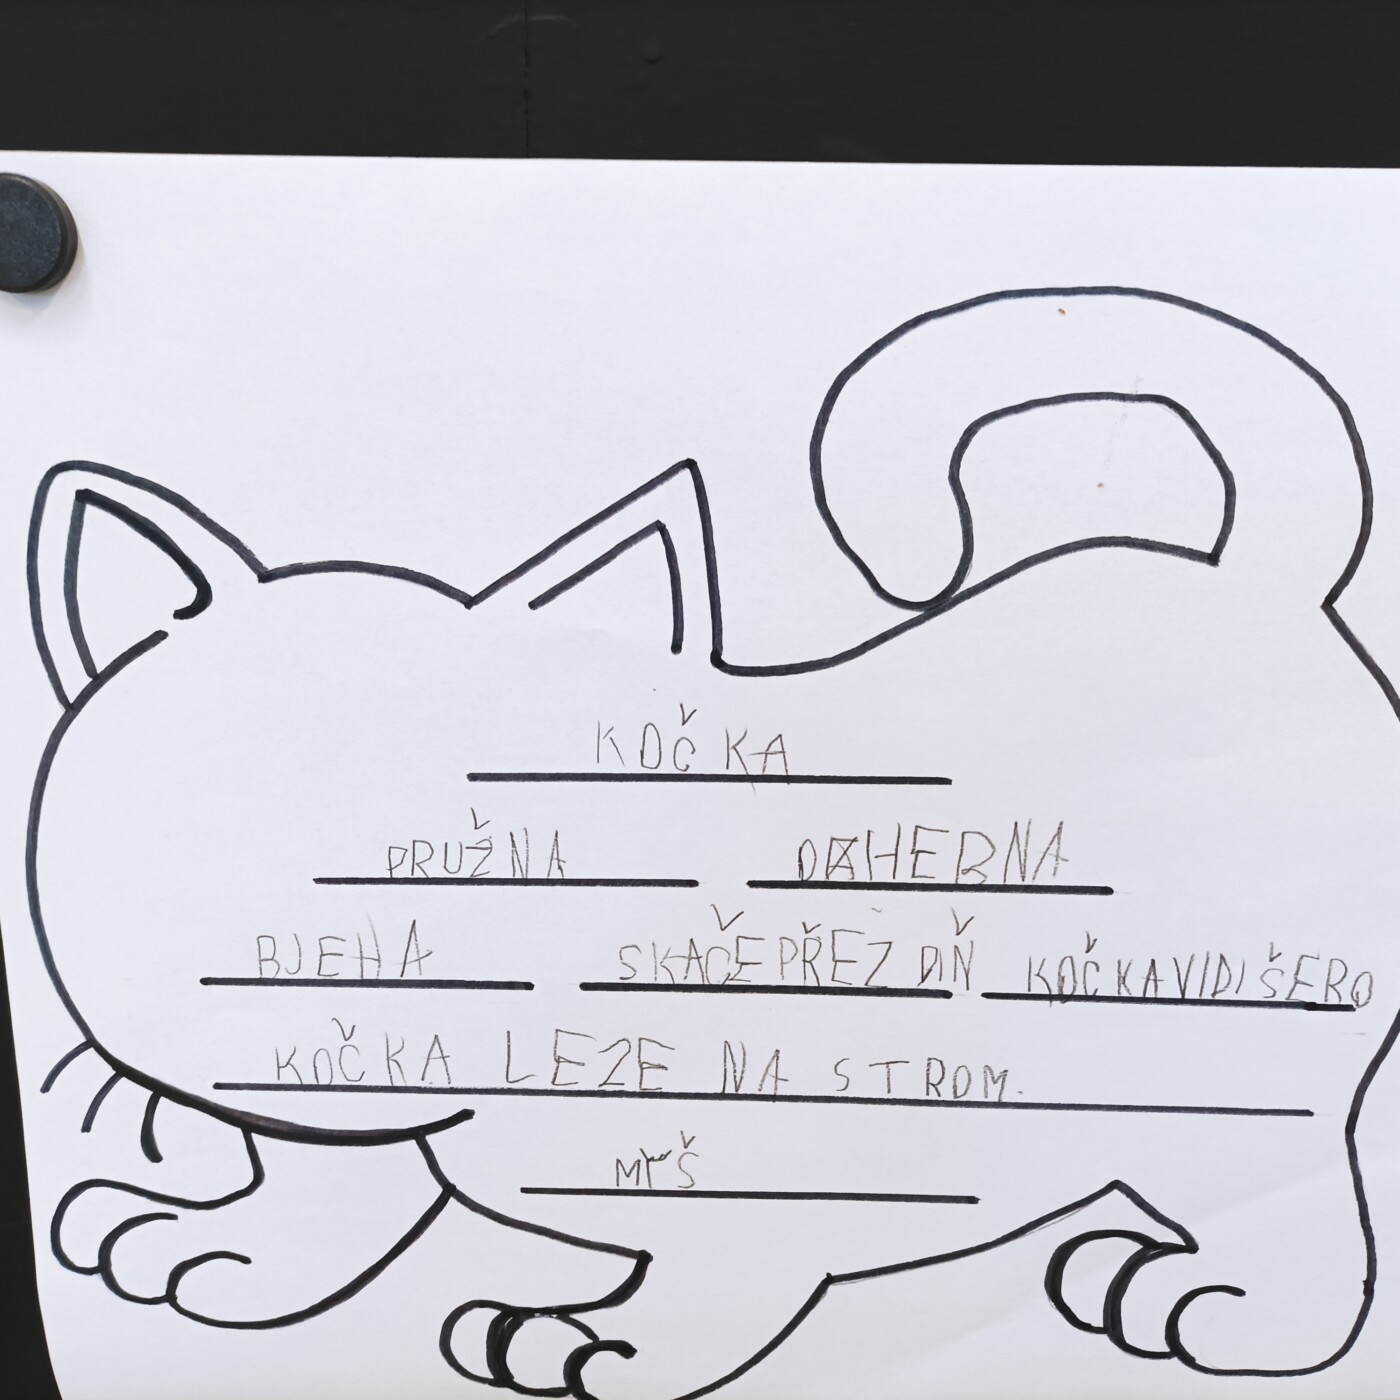 KOČKA
PRUŽNA DAHEBNA
BJEHA SKAČE PŘEZ DIŇ KOČKA VIDI ŠERO
KOČKA LEZE NA STROM.
MYŠ